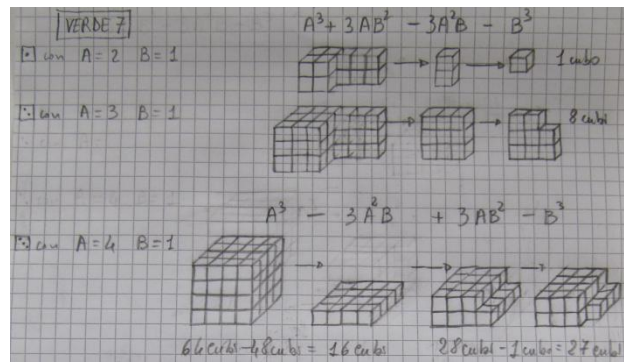 VERDE 7
A³ + 3AB² - 3A²B - B³
con A = 2 B = 1
1 cubo
con A = 3 B = 1
8 cubi
A³ - 3A²B + 3AB² - B³
con A = 4 B = 1
64 cubi - 48 cubi = 16 cubi 28 cubi - 1 cubo = 27 cubi